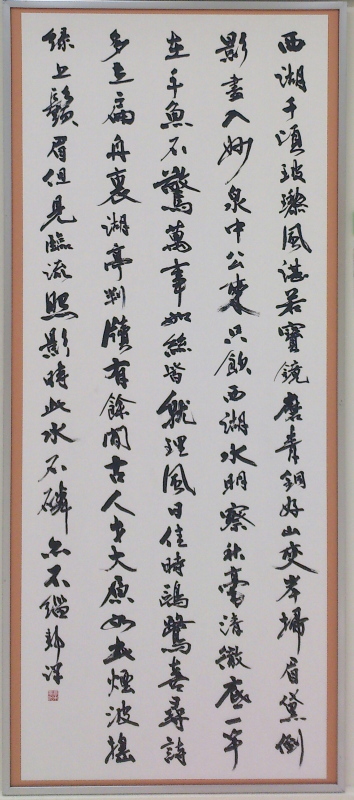 西湖千頃玻瓈風湛若寶鏡磨青銅好山夾岸掃眉黛倒
影畫入妙泉中公來只飲西湖水明察秋毫清徹底一
在手魚不驚萬事如絲皆就理風日佳時鷗鷺喜尋詩
多在扁舟裏湖亭判牘有餘閒古人才大原如此煙波搖
綠上鬚眉但見臨流照影時此水不磷亦不緇